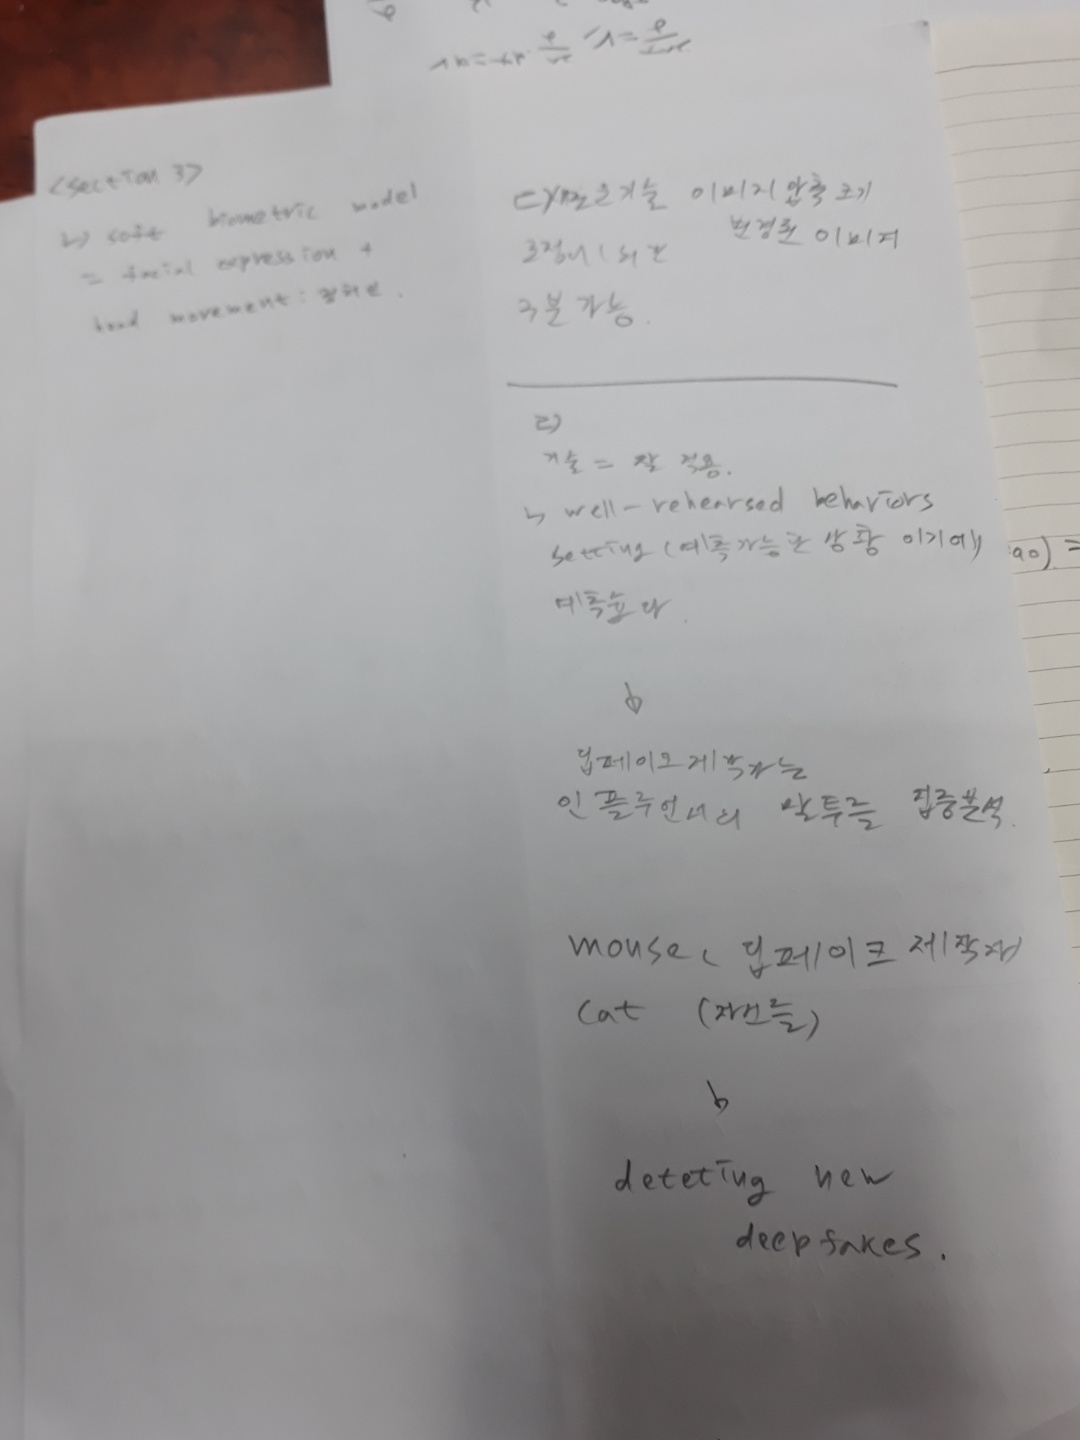 <section 3>
ㄴ) soft biometric model
= facial expression +
head movement:
ㄷ) 기술 이미지 압축 크기
변경된 이미지
구분 가능.
ㄹ)
기술 = 잘 적용.
↳ well-rehearsed behaviors
setting (예측가능한 상황 이기에)
예측
↓
딥페이크 제작자는
인플루언서의 말투를 집중분석.
mouse, 딥페이크 제작자
cat (자신들)
↓
deteting new
deepfakes.